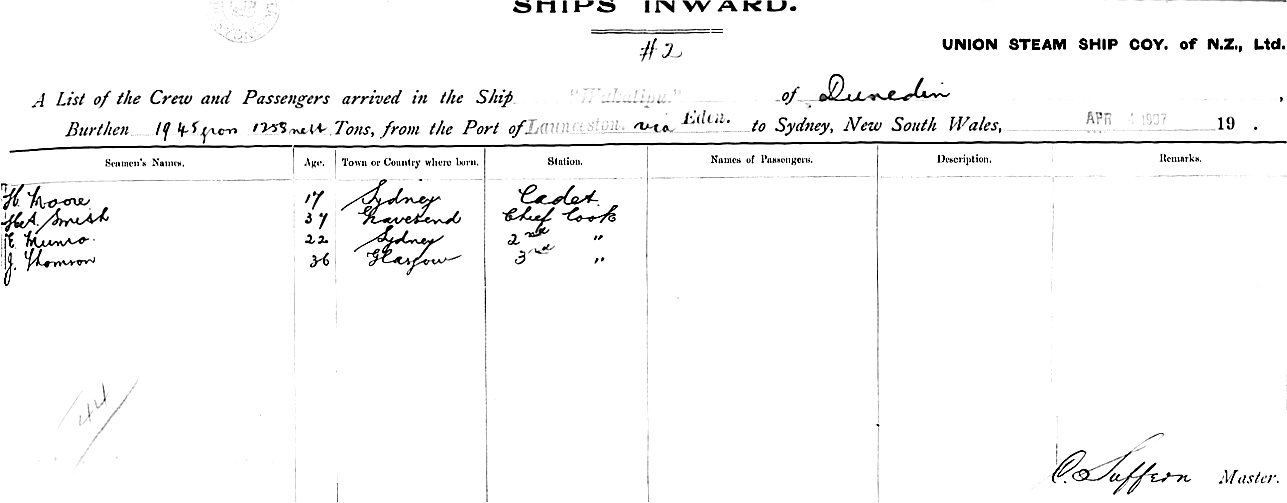 SHIPS INWARD.
#2
UNION STEAM SHIP COY. of N.Z., Ltd.
A List of the Crew and Passengers arrived in the Ship "Wakatipu" of Dunedin,
Burthen 1945 gross 1258 nett Tons, from the Port of Launceston. via Eden. to Sydney, New South Wales, APR 1907 19 .
Seamen's Names. Age. Town or Country where born. Station. Names of Passengers. Description. Remarks.
H. Moore 17 Sydney Cadet.
Smith 37 Gravesend Chief Cook
E. Munro. 22 Sydney 2nd "
J. Thomson 36 Glasgow 3rd "
44
C. Suffern Master.